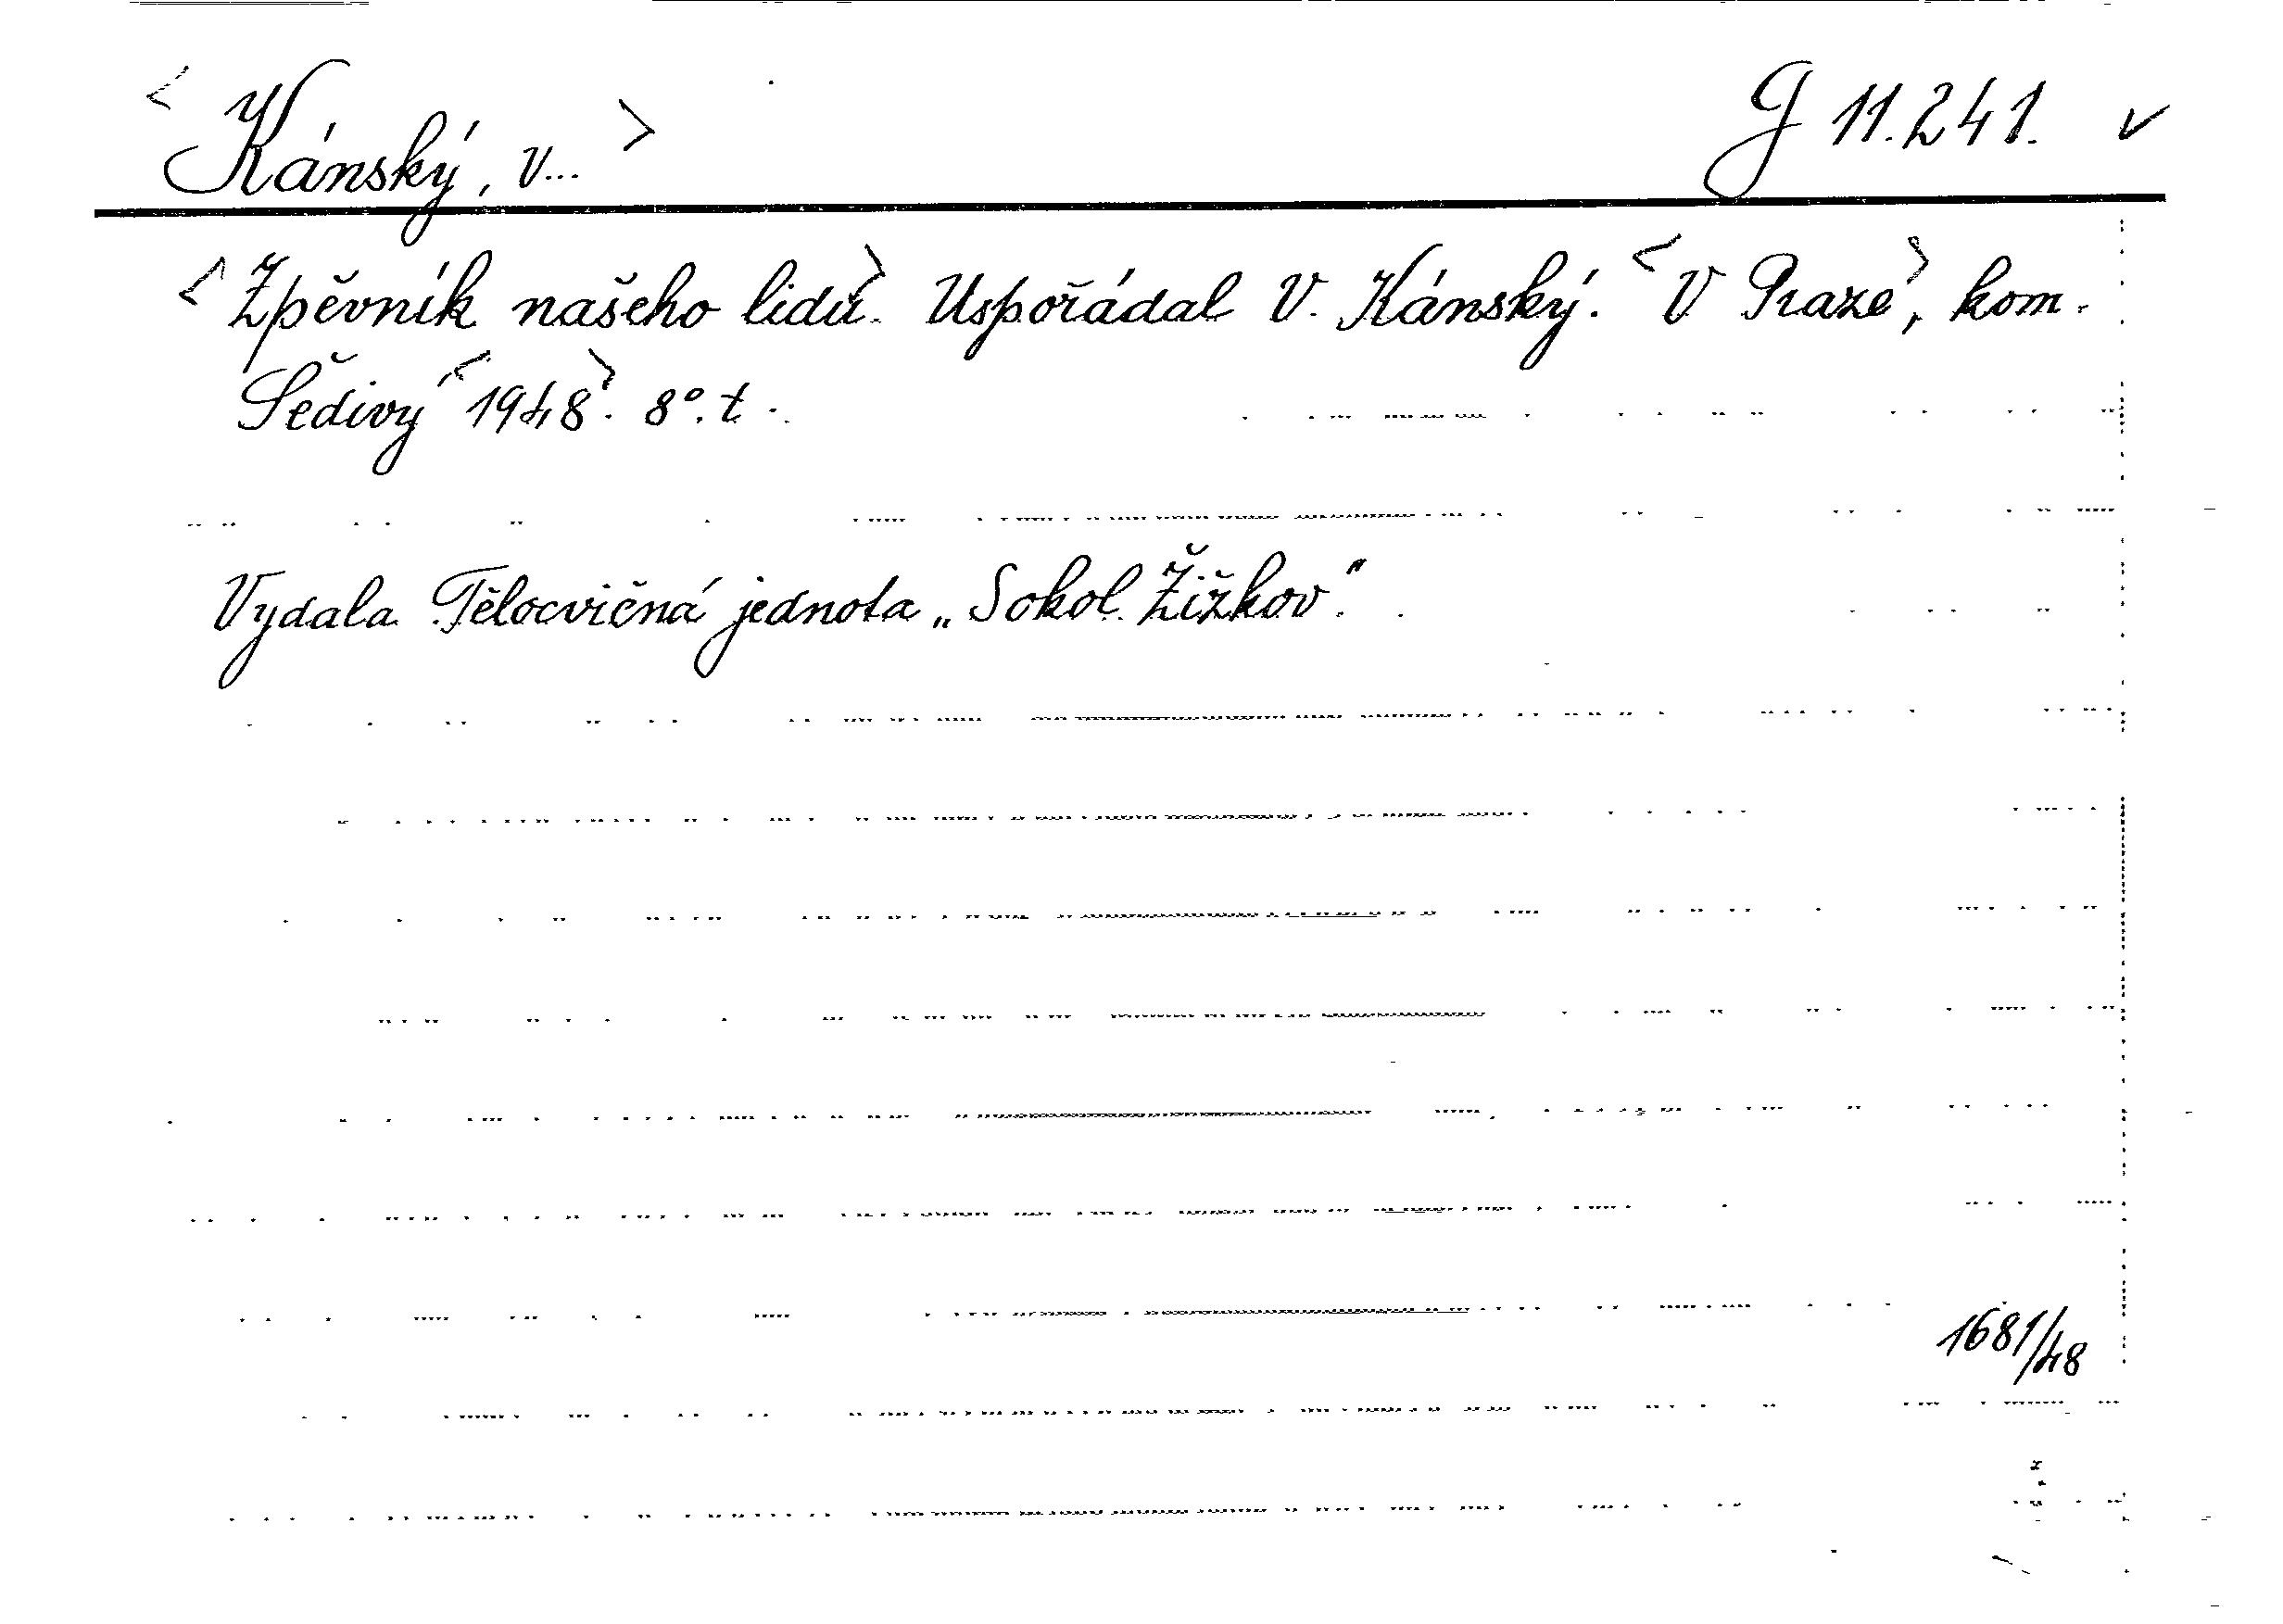 <Kánský, V...> G 11.241. ✓
<Zpěvník našeho lidu>. Uspořádal V. Kánský. <V Praze>, kom.
Šedivý <1948>. 8°. t.
Vydala Tělocvičná jednota „Sokol Žižkov".
1681/48